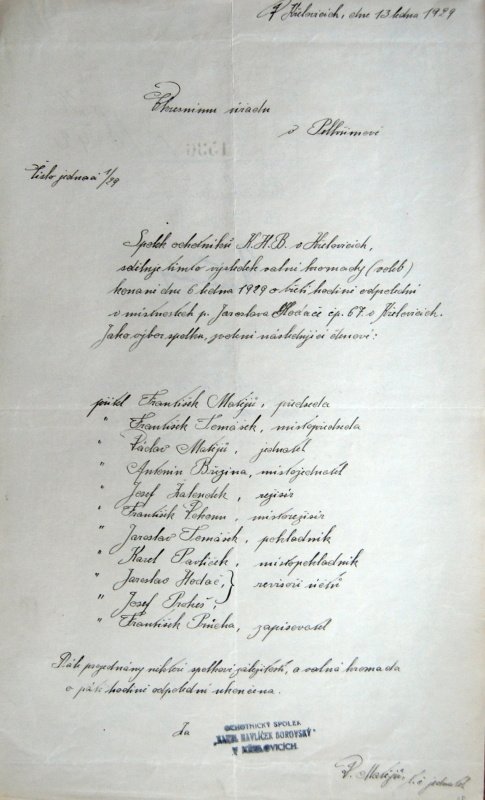 V Křelovicích, dne 13 ledna 1929
Okresnímu úřadu
v Pelhřimově
Číslo jednací 1/29
Spolek ochotníků K.H.B. v Křelovicích,
sděluje tímto výsledek valné hromady (voleb)
konané dne 6 ledna 1929 o třetí hodině odpolední
v místnostech p. Jaroslava Hodače čp. 67 v Křelovicích.
Jako výbor spolku, zvoleni následující členové:
přítel František Matějů, předseda
" František Tomášek, místopředseda
" Václav Matějů, jednatel
" Antonín Březina, místojednatel
" Josef Žalendek, režisér
" František, místorežisér
" Jaroslav Tomášek, pokladník
" Karel Pavlíček, místopokladník
" Jaroslav Hodač, } revisoři účtů
" Josef Prokeš,
" František Průcha, zapisovatel
Dále projednány některé spolkové záležitosti, a valná hromada
o páté hodině odpolední ukončena.
Za
OCHOTNICKÝ SPOLEK
"KAREL HAVLÍČEK BOROVSKÝ"
V KŘELOVICÍCH.
V. Matějů t. č. jednatel